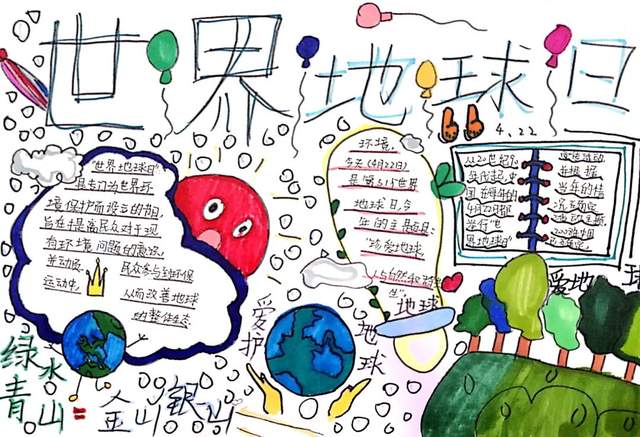 世界地球日
4.22
"世界地球日"
是专门为世界环
境保护而设立的节日
旨在提高民众对于现
有环境问题的意识,
并动员 民众参与到环保
运动中,
从而改善地球
的整体生态
环境,
今天(4月22日)
是第51个世界
地球日,今
年的主题是:
"珍爱地球
人与自然和谐共
生"
从20世纪70
年代起,中
国在每年的
4月22日都
举行"世
界地球日"
活动,
并根据
当年的情
况主题
活动主题,
爱地球
地球
爱护
地球
绿水
青山=金山银山